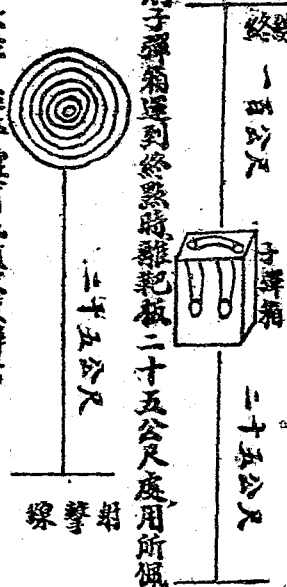 終
一百公尺
彈箱
二十五公尺
子彈箱運到終點時離靶板二十五公尺處用所佩
二十五公尺
射擊線